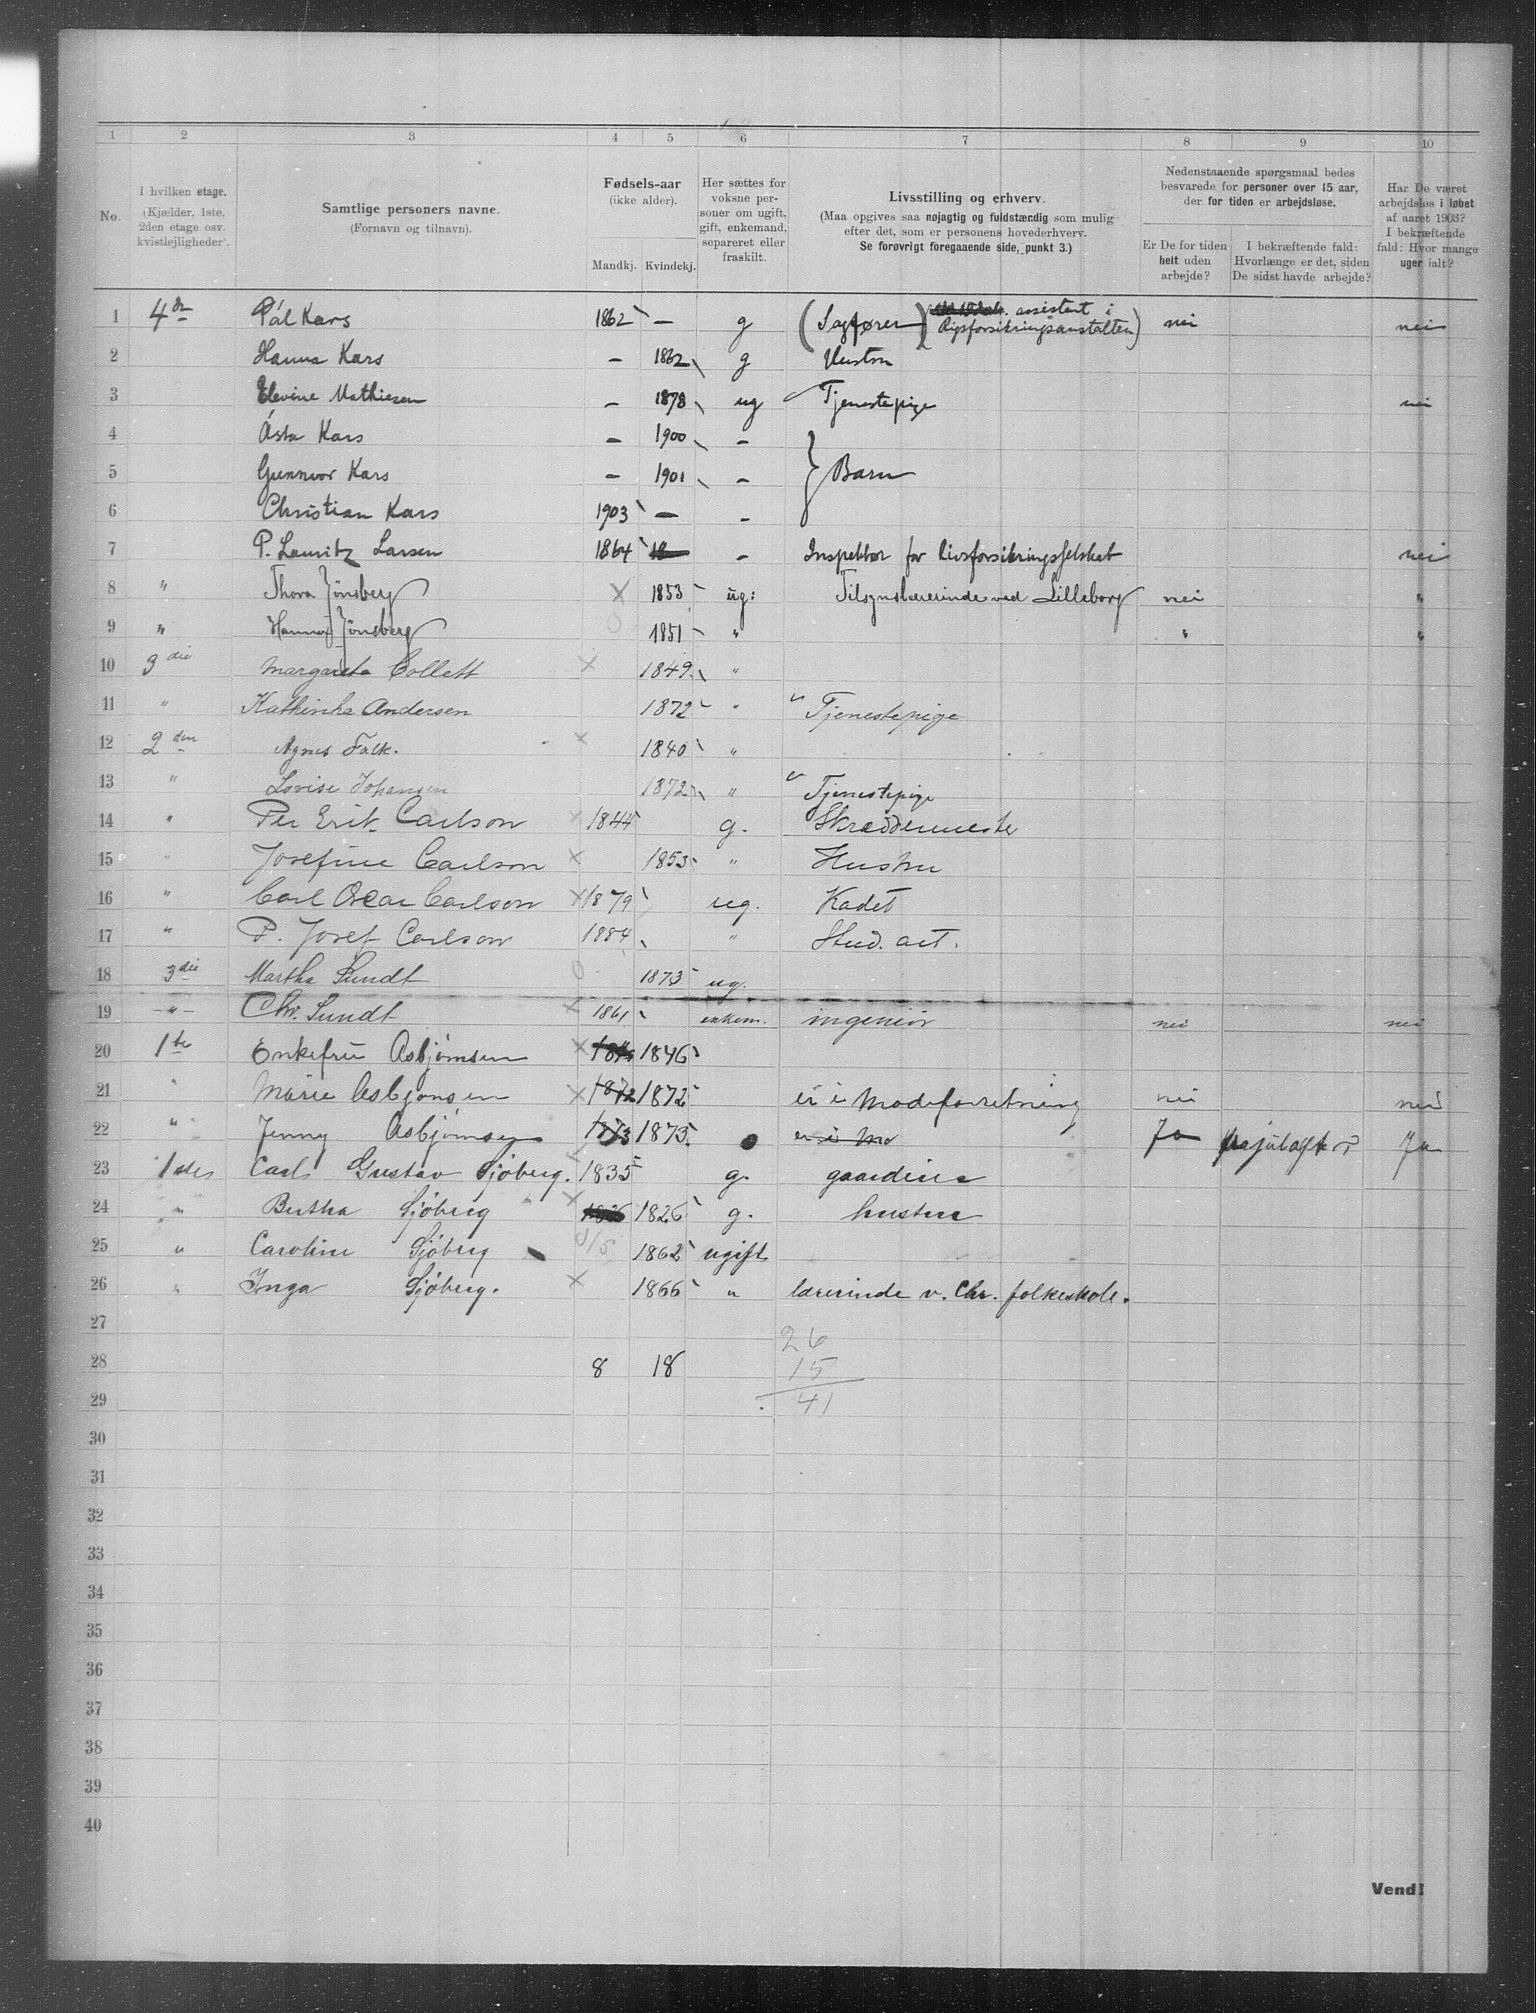 1 2 3 4 5 6 7 8 9 10
No.
I hvilken etage.
(Kjælder, 1ste,
2den etage osv.
kvistlejligheder).
Samtlige personers navne.
(Fornavn og tilnavn).
Fødsels-aar
(ikke alder).
Mandkj. Kvindekj.
Her sættes for
voksne per-
soner om ugift,
gift, enkemand,
separeret eller
fraskilt.
Livsstilling og erhverv.
(Maa opgives saa nøjagtig og fuldstændig som mulig
efter det, som er personens hovederhverv.
Se forøvrigt foregaaende side, punkt 3.)
Nedenstaaende spørgsmaal bedes
besvarede for personer over 15 aar,
der for tiden er arbejdsløse.
Er De for tiden
helt uden
arbejde?
I bekræftende fald:
Hvorlænge er det, siden
De sidst havde arbejde?
Har De været
arbejdsløs i løbet
af aaret 1903?
I bekræftende
fald: Hvor mange
uger ialt?
1 4de Pål Kars 1862 — g (Sagfører) assistent i Rigsforsikringsanstalten) nei nei
2 Hanna Kars — 1862 g Hustru
3 Elevine Mathiesen — 1878 ug Tjenestepige nei
4 Ásta Kars — 1900 —
5 Gunnvor Kars — 1901 — } Barn
6 Christian Kars 1903 — —
7 P. Lauritz Larsen 1864 18 — Inspektør for livsforsikringsselskab nei
8 " Thora Jönsberg X 1853 ug: Tilsynslærerinde ved Lilleborg nei "
9 " Hanna Jönsberg O 1851 " " "
10 3die Margarete Collett X 1849 "
11 " Kathinka Andersen 1872 " Tjenestepige
12 2den Agnes Falk. X 1840 "
13 " Lovise Johansen 1872 " Tjenestepige
14 " Per Erik Carlson X 1844 g. Skræddermester
15 " Josefine Carlson X 1853 " Hustru
16 " Carl Oscar Carlson X 1879 ug. Kadet
17 " P. Josef Carlson 1884 " Stud. art.
18 3die Martha Sundt O 1873 ug.
19 -"- Chr. Sundt X 1861 enkem. ingeniør nei nei
20 1te Enkefru Asbjørnsen X 1846
21 " Marie Asbjønsen X 1872 1872 er i Modeforretning nei nei
22 " Jenny Asbjørnsen 1873 1873 er i Mo Ja Ja
23 1ste Carl Gustav Sjöberg. X 1835 g. gaardeier
24 " Bertha Sjöberg X 1826 g. hustru
25 " Caroline Sjöberg 1862 ugift
26 " Inga Sjöberg. X 1866 " lærerinde v. Chr. folkeskole.
27 26
28 8 18 15
29 41
30
31
32
33
34
35
36
37
38
39
40
Vend!